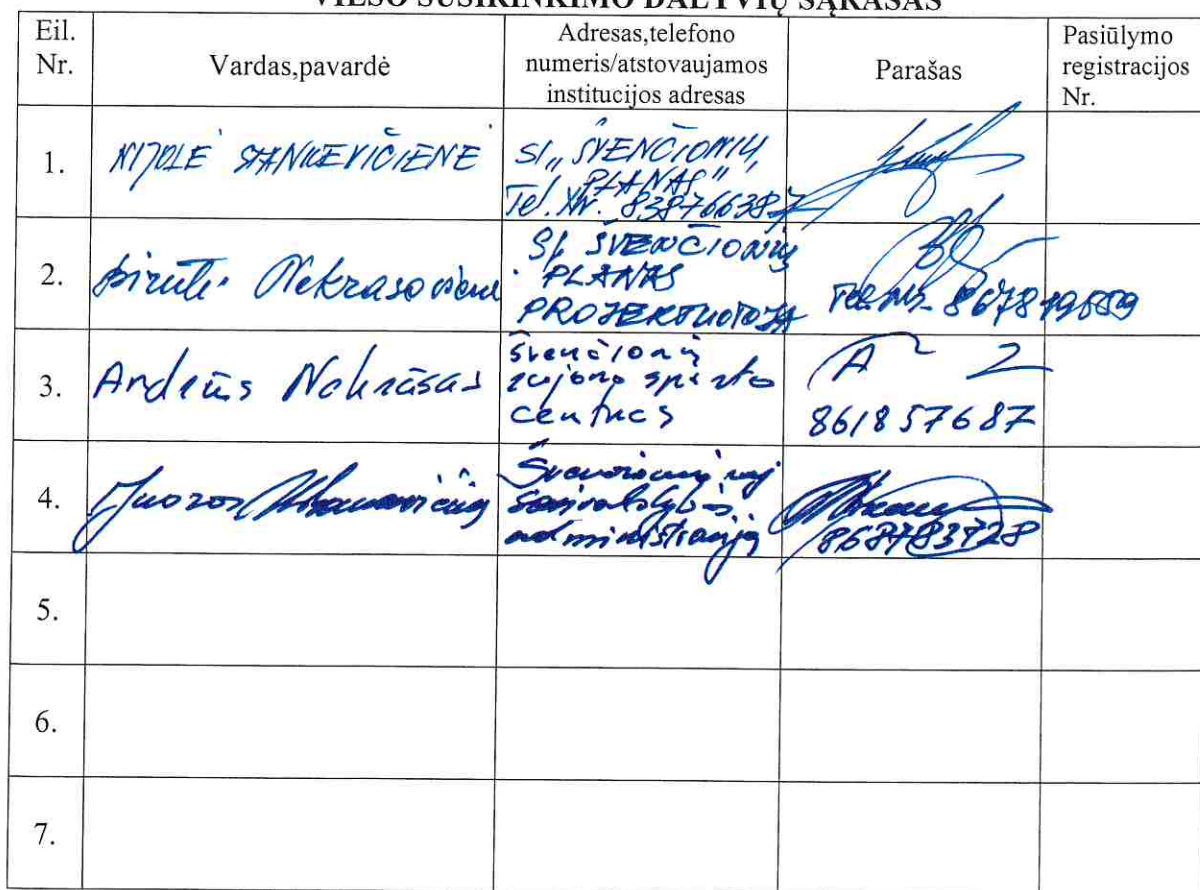 VIEŠO SUSIRINKIMO DALYVIŲ SĄRAŠAS
Eil. Nr.
Vardas,pavardė
Adresas,telefono
numeris/atstovaujamos
institucijos adresas
Parašas
Pasiūlymo
registracijos
Nr.
1.
NIJOLĖ STANKEVIČIENĖ
SĮ „ŠVENČIONIŲ
PLANAS"
Tel. Nr. 838766387
2.
Birutė Nekrasovienė
SĮ ŠVENČIONIŲ
PLANAS
PROJEKTUOTOJA
Tel. nr. 867819559
3.
Andrius Nekrašas
Švenčionių
rajono sporto
centras
861857687
4.
Juozas
Švenčionių raj
savivaldybės
administracija
868783728
5.
6.
7.